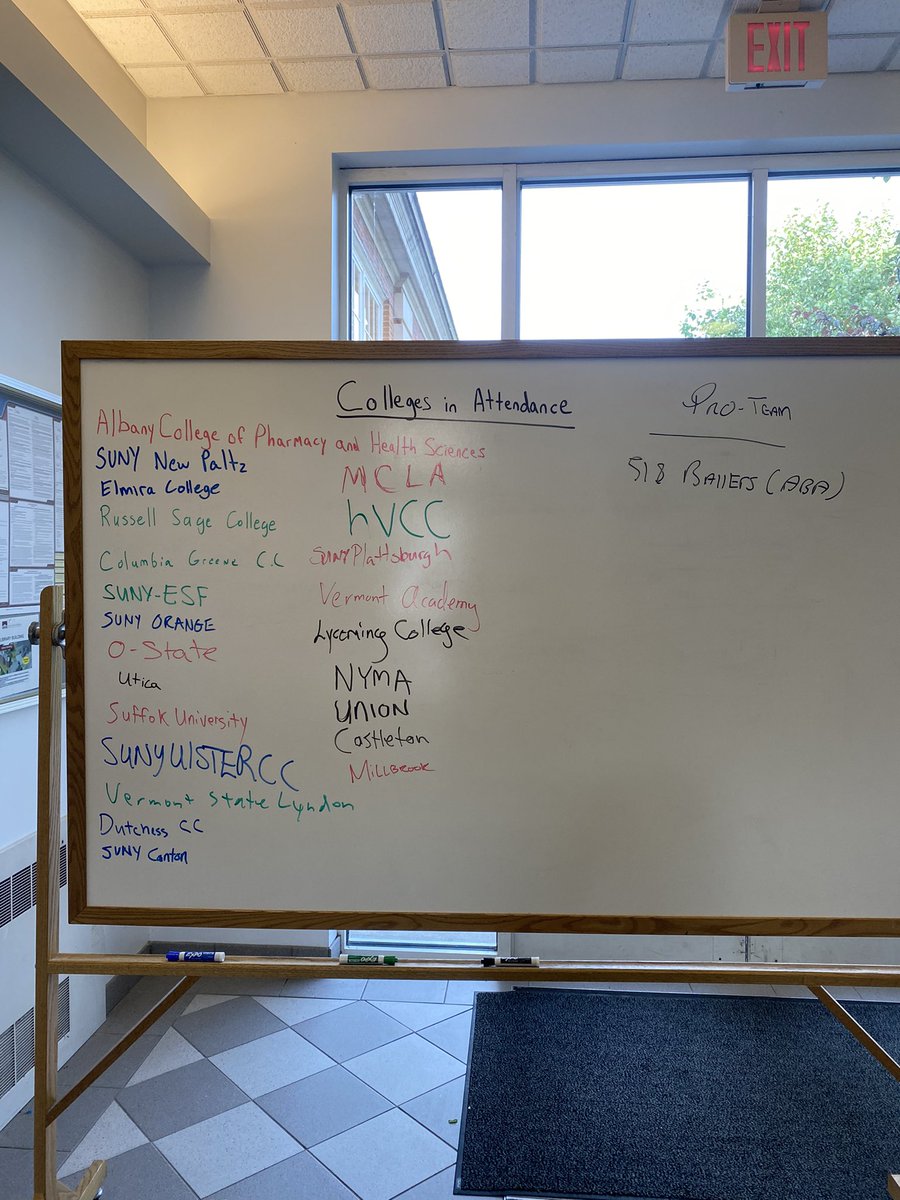 EXIT
Colleges in Attendance
Albany College of Pharmacy and Health Sciences
SUNY New Paltz
Elmira College
Russell Sage College
Columbia Greene C.C
SUNY-ESF
SUNY ORANGE
O-State
Utica
Suffok University
SUNY UlSTER CC
Vermont State Lyndon
Dutchess CC
SUNY Canton
MCLA
hVCC
SUNY Plattsburgh
Vermont Academy
Lycoming College
NYMA
UNION
Castleton
MillBrook
PRO-TEAM
518 BAllERS (ABA)